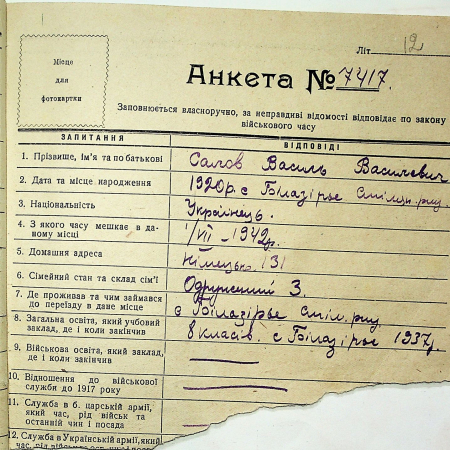 Літ. 12
Місце
для
фотокартки
Анкета № 7417.
Заповнюється власноручно, за неправдиві відомості відповідає по закону
військового часу
ЗАПИТАННЯ
ВІДПОВІДІ
1. Прізвище, ім'я та по батькові
Салов Василь Василевич
2. Дата та місце народження
1920р. с Білазірьє Смілян. рну.
3. Національність
Українець.
4. З якого часу мешкає в да-
ному місці
1/VII – 1942р.
5. Домашня адреса
Німецька 131
6. Сімейний стан та склад сім'ї
Одружений 3.
7. Де проживав та чим займався
до переїзду в дане місце
с Білазірьє Сміл. рну.
8. Загальна освіта, який учбовий
заклад, де і коли закінчив
8 класів. с Білазірьє 1937р.
9. Військова освіта, який заклад,
де і коли закінчив
10. Відношення до військової
служби до 1917 року
11. Служба в б. царській армії,
який час, рід військ та
останній чин і посада
12. Служба в Українській армії, який